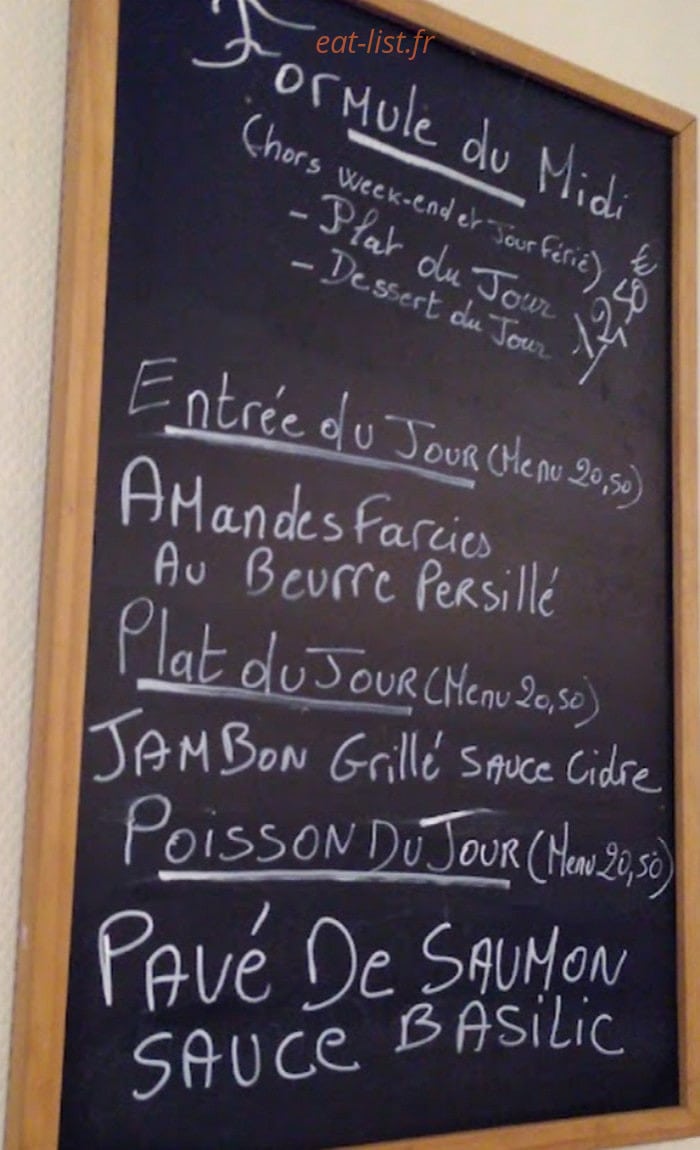 eat-list.fr
Formule du Midi
(hors week-end et Jour Férié)
- Plat du Jour
- Dessert du Jour
50 €
Entrée du Jour (Menu 20,50)
Amandes Farcies
Au Beurre Persillé
Plat du Jour (Menu 20,50)
Jambon Grillé Sauce Cidre
Poisson Du Jour (Menu 20,50)
Pavé De Saumon
Sauce Basilic